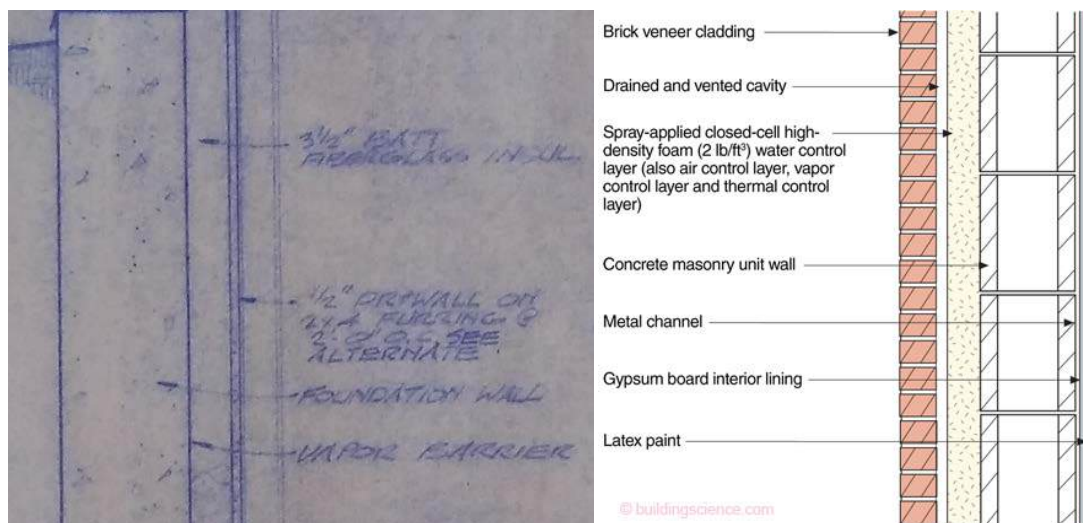 3½" BATT
FIBERGLASS INSUL.
½" DRYWALL ON
2x4 FURRING @
2'-0" O.C. SEE
ALTERNATE
FOUNDATION WALL
VAPOR BARRIER
Brick veneer cladding
Drained and vented cavity
Spray-applied closed-cell high-
density foam (2 lb/ft³) water control
layer (also air control layer, vapor
control layer and thermal control
layer)
Concrete masonry unit wall
Metal channel
Gypsum board interior lining
Latex paint
© buildingscience.com